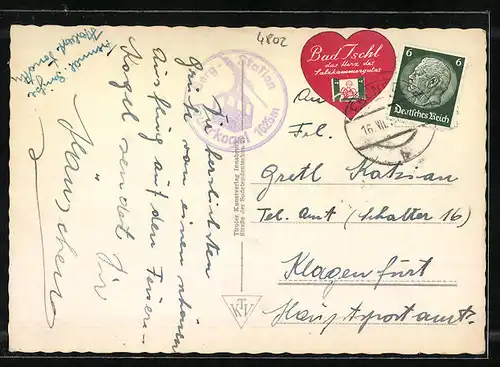 4802
Berg-Station
Feuerkogel 1625m
Die herzlichsten
Grüße von einem schönen
Ausflug auf den Feuer-
kogel sendet Dir
Tiroler Kunstverlag Innsbruck
TKV
Bad Ischl
das Herz des
Salzkammergutes
6 6
Deutsches Reich
16. VII.
An
Frl.
Gretl Katzian
Tel. Amt (Schalter 16)
Klagenfurt
Hauptpostamt.